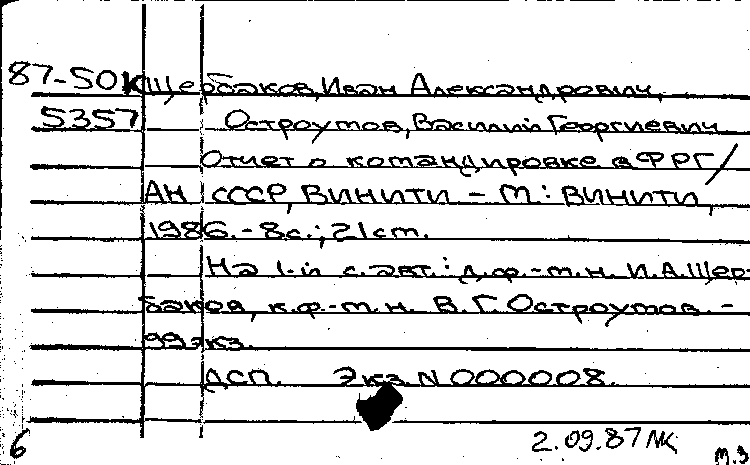 87-50К Щербаков, Иван Александрович,
5357 Остроумов, Василий Георгиевич
Отчет о командировке в ФРГ/
АН СССР, ВИНИТИ - М.: ВИНИТИ,
1986. - 8с.; 21 cm.
На 1-й с. авт.: д.ф.-м.н. И.А.Щер-
баков, к.ф.-м.н. В.Г.Остроумов. -
99 экз.
ДСП. Экз. N 000008.
2.09.87
6
м.з